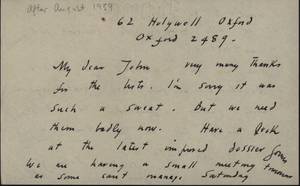 After August 1939
62 Holywell Oxford
Oxford 2489.
My dear John very many thanks
for the lists. I'm sorry it was
such a sweat. But we need
them badly now. Have a look
at the latest dossier
We are having a small meeting
as some can't manage Saturday